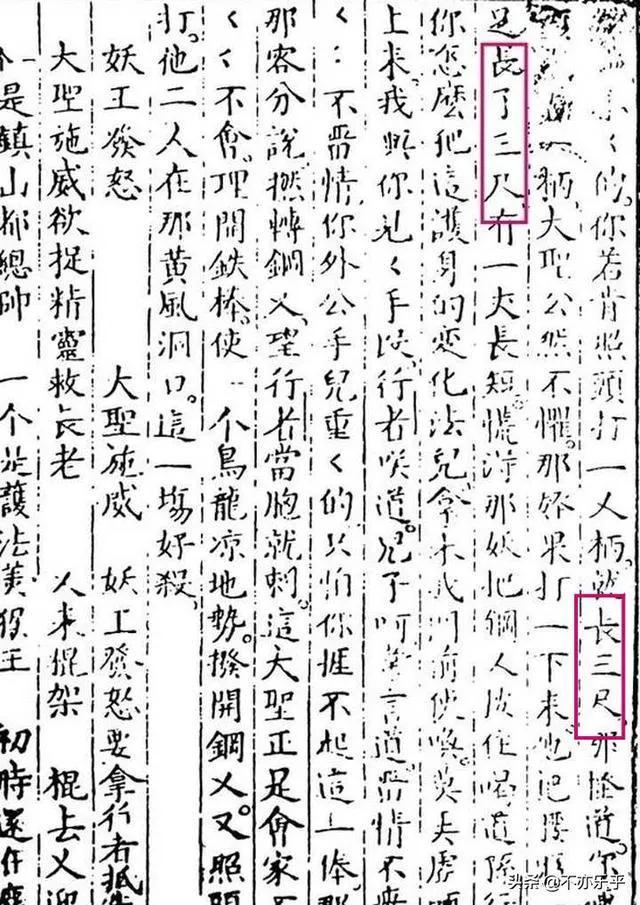 小〻的。你若肯照頭打一乂柄。就长三尺。那怪道。你
柄。大聖公然不懼。那妖果打一下來。他把腰
足長了三尺。有一丈長短。慌得那妖把鋼乂按住喝道。孫行
你怎麽把這護身的变化法兒。拿來我門前使喚。莫弄虛頭
上來。我與你見〻手段。行者咲道。兒子呵。常言道。畱情不舉
〻。不畱情。你外公手兒重〻的。只怕你捱不起這一棒。那
那容分說。撚轉鋼乂。望行者當胸就刺。這大聖正是會家不
〻不會。理開鉄棒。使一个烏龍凉地勢。撥開鋼乂。又照頭
打。他二人在那黃風洞口。這一塲好殺。
妖王發怒　大聖施威　妖王發怒要拿行者抵先
大聖施威欲捉精靈救長老　乂來棍架　棍去乂迎
个是鎮山都總帥　一个是護法美猴王　初時還在塵
头条 @不亦乐乎